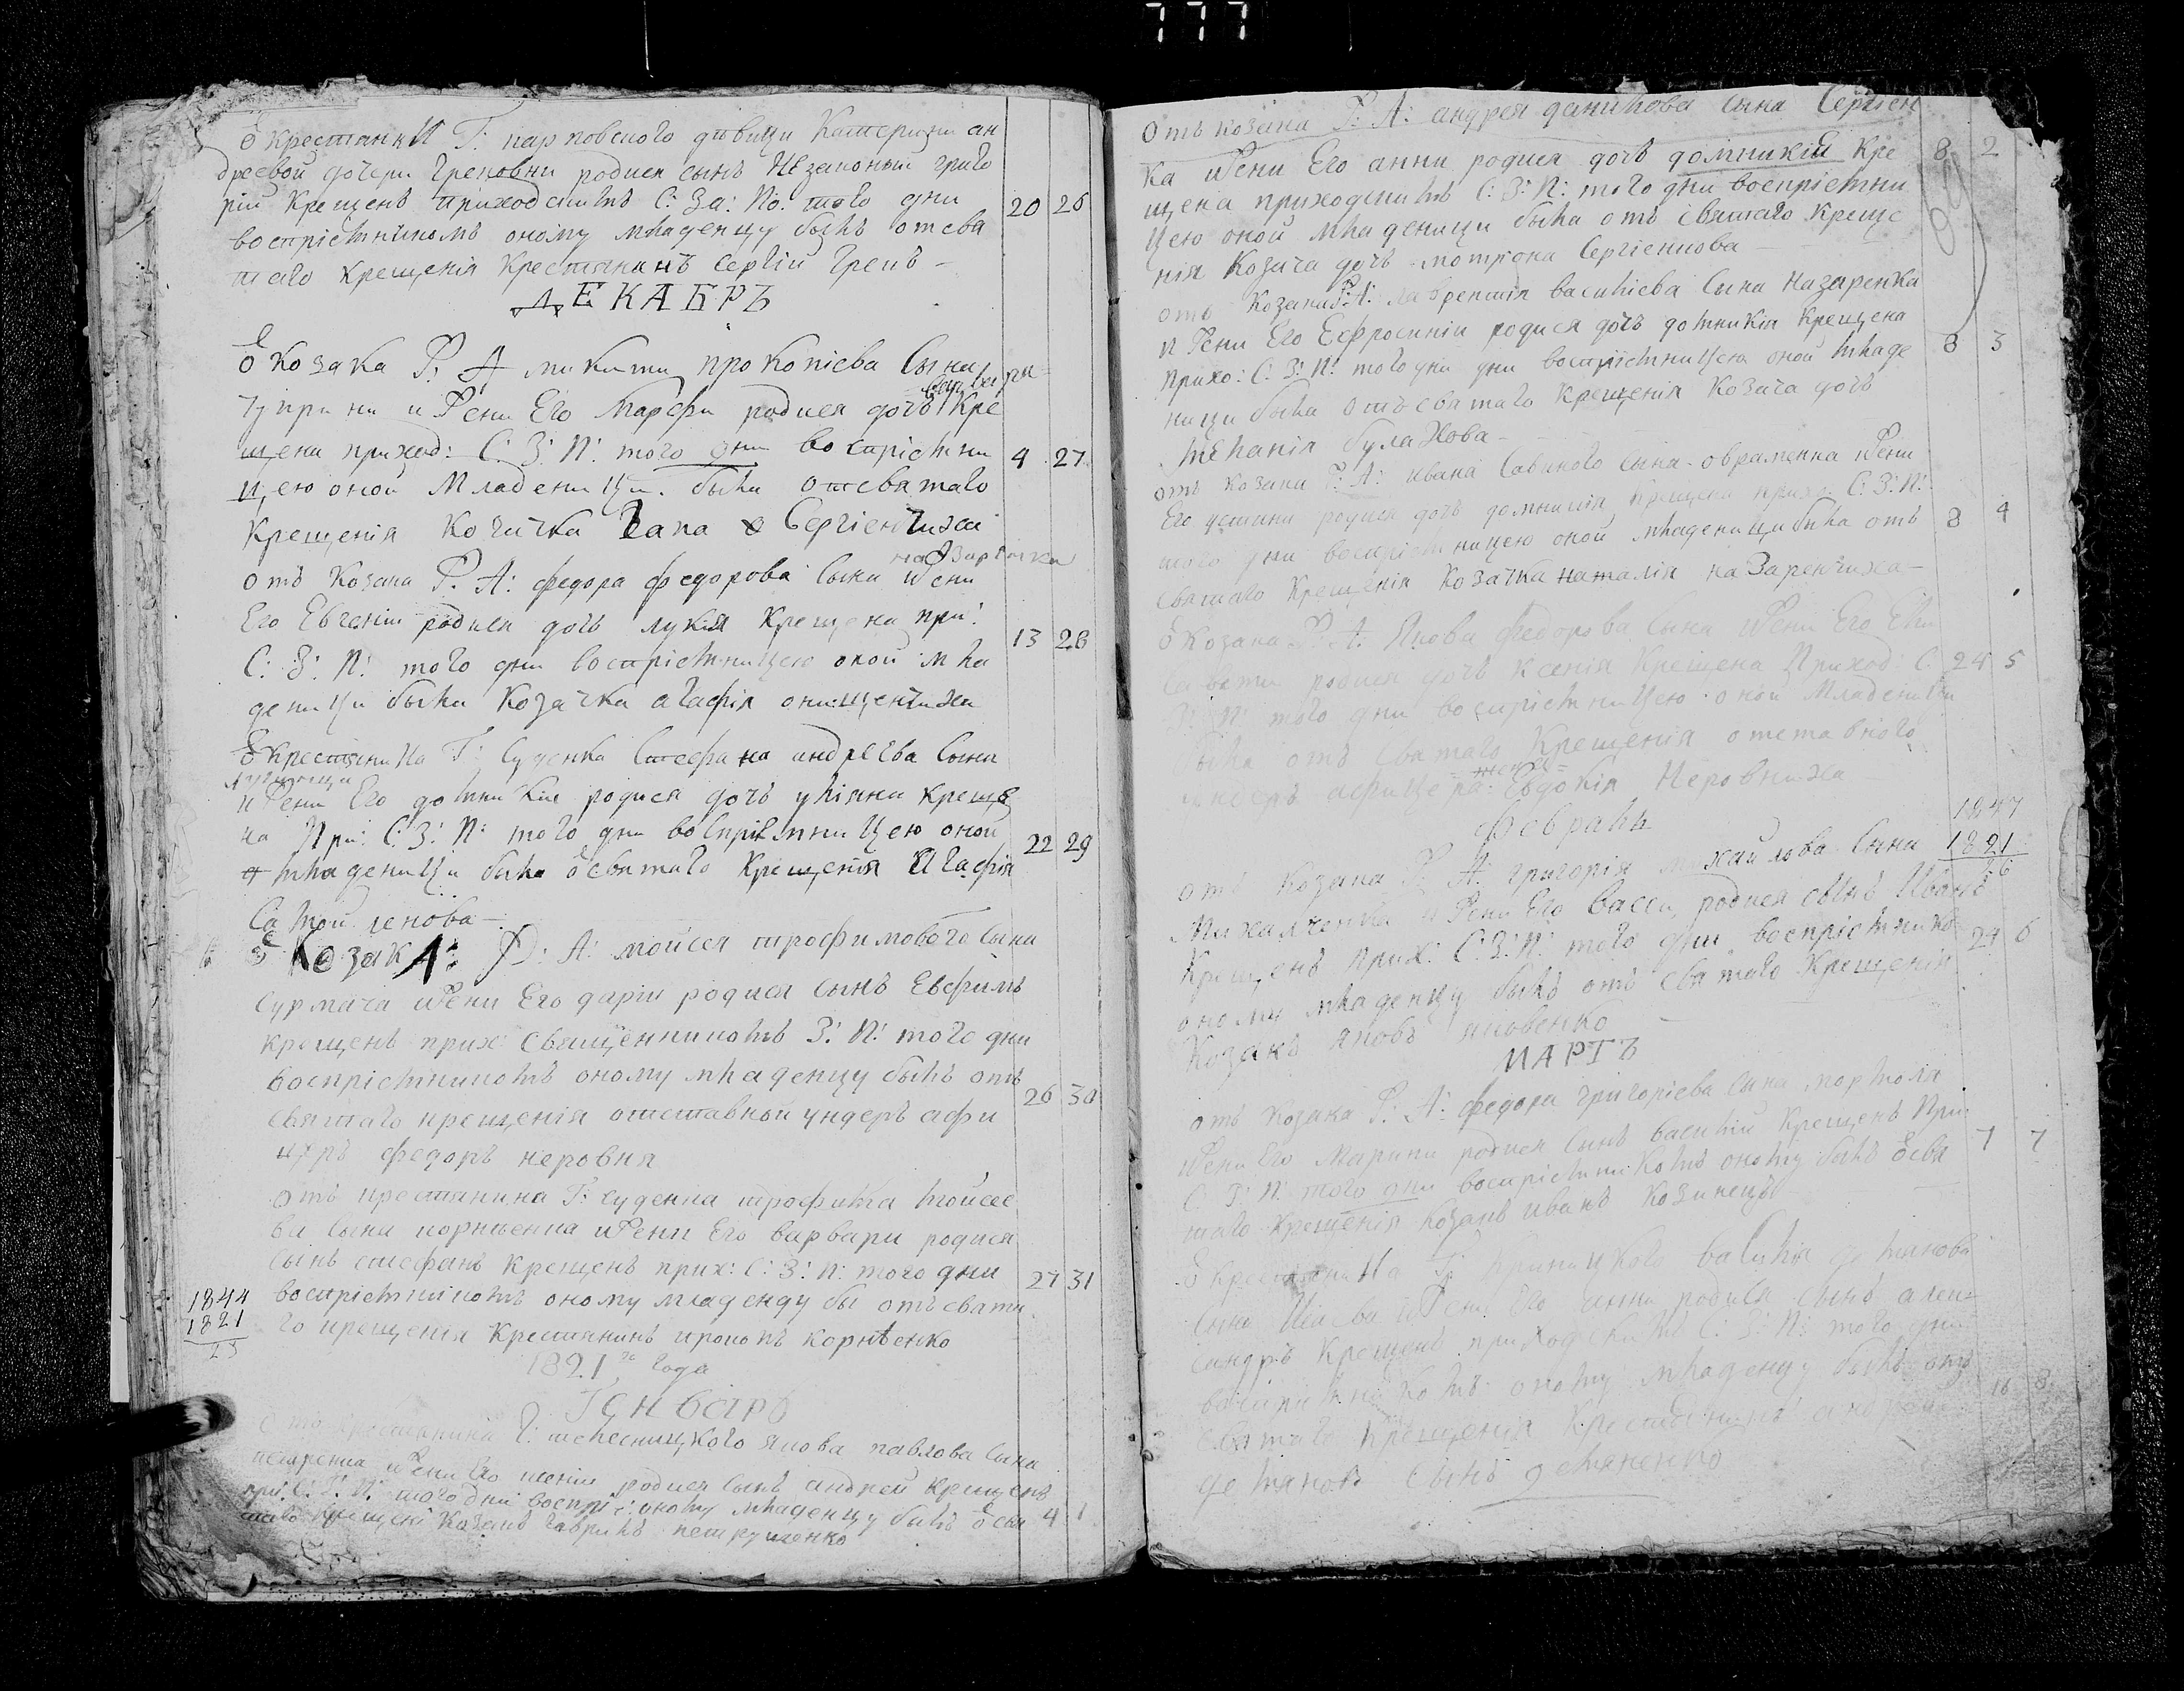 777
Ѿ крестянки Г: карповского дѣвици Катерини ан
дреевой дочери Грековни родися сынъ Незаконый григо
рїй Крещенъ приходскимъ С: За: По: того дни
воспрїемникомъ оному младенцу былъ отсвя
таго крещенія Крестянинъ Сергій Грекъ –
20 26
ДЕКАБРЪ
Ѿ козака Р: А микити прокопіева Сына
чуприни и жени Его Марфи родися дочъ варвара Кре
щена приход: С: З: П: того дни воспріемни
цею оной Младеницы была отсвятаго
Крещенія Козачка Сергіенчиха
4 27
отъ Козака Р. А: федора федорова Сына Назаренка и жени
Его Евгеніи родися дочъ лукія Крещена при:
С: З: П: того дни воспріемницею оной мла
деници была Козачка агафія онищенчиха
13 28
Ѿ крестянина Г: Суденка Стефана андреева Сына
и жени Его домникіи родися дочъ уліяна креще
на При: С: З: П: того дни воспріемницею оной
младеници была Ѿ святаго Крещенія Агафія
Самойленова –
22 29
Ѿ КозакА: Р: А: мойсея трофимового Сына
Сурмача и жени Его даріи родися сынъ Евфимъ
крещенъ прих: Священникомъ З: П: того дни
воспріемникомъ оному младенцу былъ отъ
святаго крещенія отставной ундеръ афи
церъ федоръ неровня
26 30
отъ крестянина Г: суденка трофима мойсее
ва Сына корнѣенка и жени Его варвари родися
Сынъ стефанъ Крещенъ прих: С: З: П: того дни
воспріемникомъ оному младенцу бы отъ свята
го крещенія Крестянинъ прокопъ корнѣенко
27 31
1844
1821
23
1821го года
Генваръ
отъ крестянина Г: якова павлова Сына
петренка и жени Его ксеніи родися Сынъ андрей Крещенъ
при: С: З: П: того дни воспріе: оному младенцу былъ Ѿ свя
таго крещені Козакъ гаврилъ петрушенко
4 1
отъ козака Р: А: андрея данилова Сына Сергіен
ка и жени Его анни родися дочъ домникіи Кре
щена приходскимъ С: З: П: того дни воспріемни
цею оной младеници была отъ святаго Креще
нія Козача дочъ мотрона Сергіенкова –
8 2
отъ Козака Р: А: лаврентія василіева Сына Назаренка
и жени Его Ефросиніи родися дочъ домникія Крещена
прихо: С: З: П: того дни дни воспріемницею оной младе
ници была отъ святаго Крещенія Козача дочъ
меланія булахова –
8 3
отъ козака Р: А: ивана Савиного Сына овраменка и жени
Его устини родися дочъ домникія крещена прихо: С: З: П:
того дни воспріемницею оной младеници била отъ
святаго Крещенія Козачка наталія назаренчиха –
8 4
Ѿ Козака Р: А: Якова федорова Сына и жени Его Ели
савети родися дочъ ксенія Крещена Приход: С:
З: П: того дни воспріемницею оной Младеници
била отъ святаго Крещенія отставного
ундеръ афицера: жена Евдокія Неровниха
24 5
Февраль
1847
1821
26
отъ Козака Р: А: григорія михайлова Сына
Михалченка и жени Его Васси, родися сынъ Иванъ
Крещенъ прих: С: З: П: того дни воспріемнико
оному младенцу былъ отъ святаго Крещенія
Козакъ яковъ яковенко
24 6
МАРТЪ
отъ Козака Р: А: федора григоріева Сына портола
и жени Его Марини родися Сынъ василій Крещенъ При:
С: З: П: того дни воспріемникомъ оному былъ Ѿ свя
таго Крещенія Козакъ иванъ Козинецъ
7 7
Ѿ крестянина Г: василія демянова
Сына и жени Его анни родися сынъ алек
сандръ Крещенъ приходскимъ С: З: П: того дни
воспріемникомъ оному младенцу былъ отъ
святаго Крещенія Крестянинъ
демяновъ Сынъ демяненко
16 8